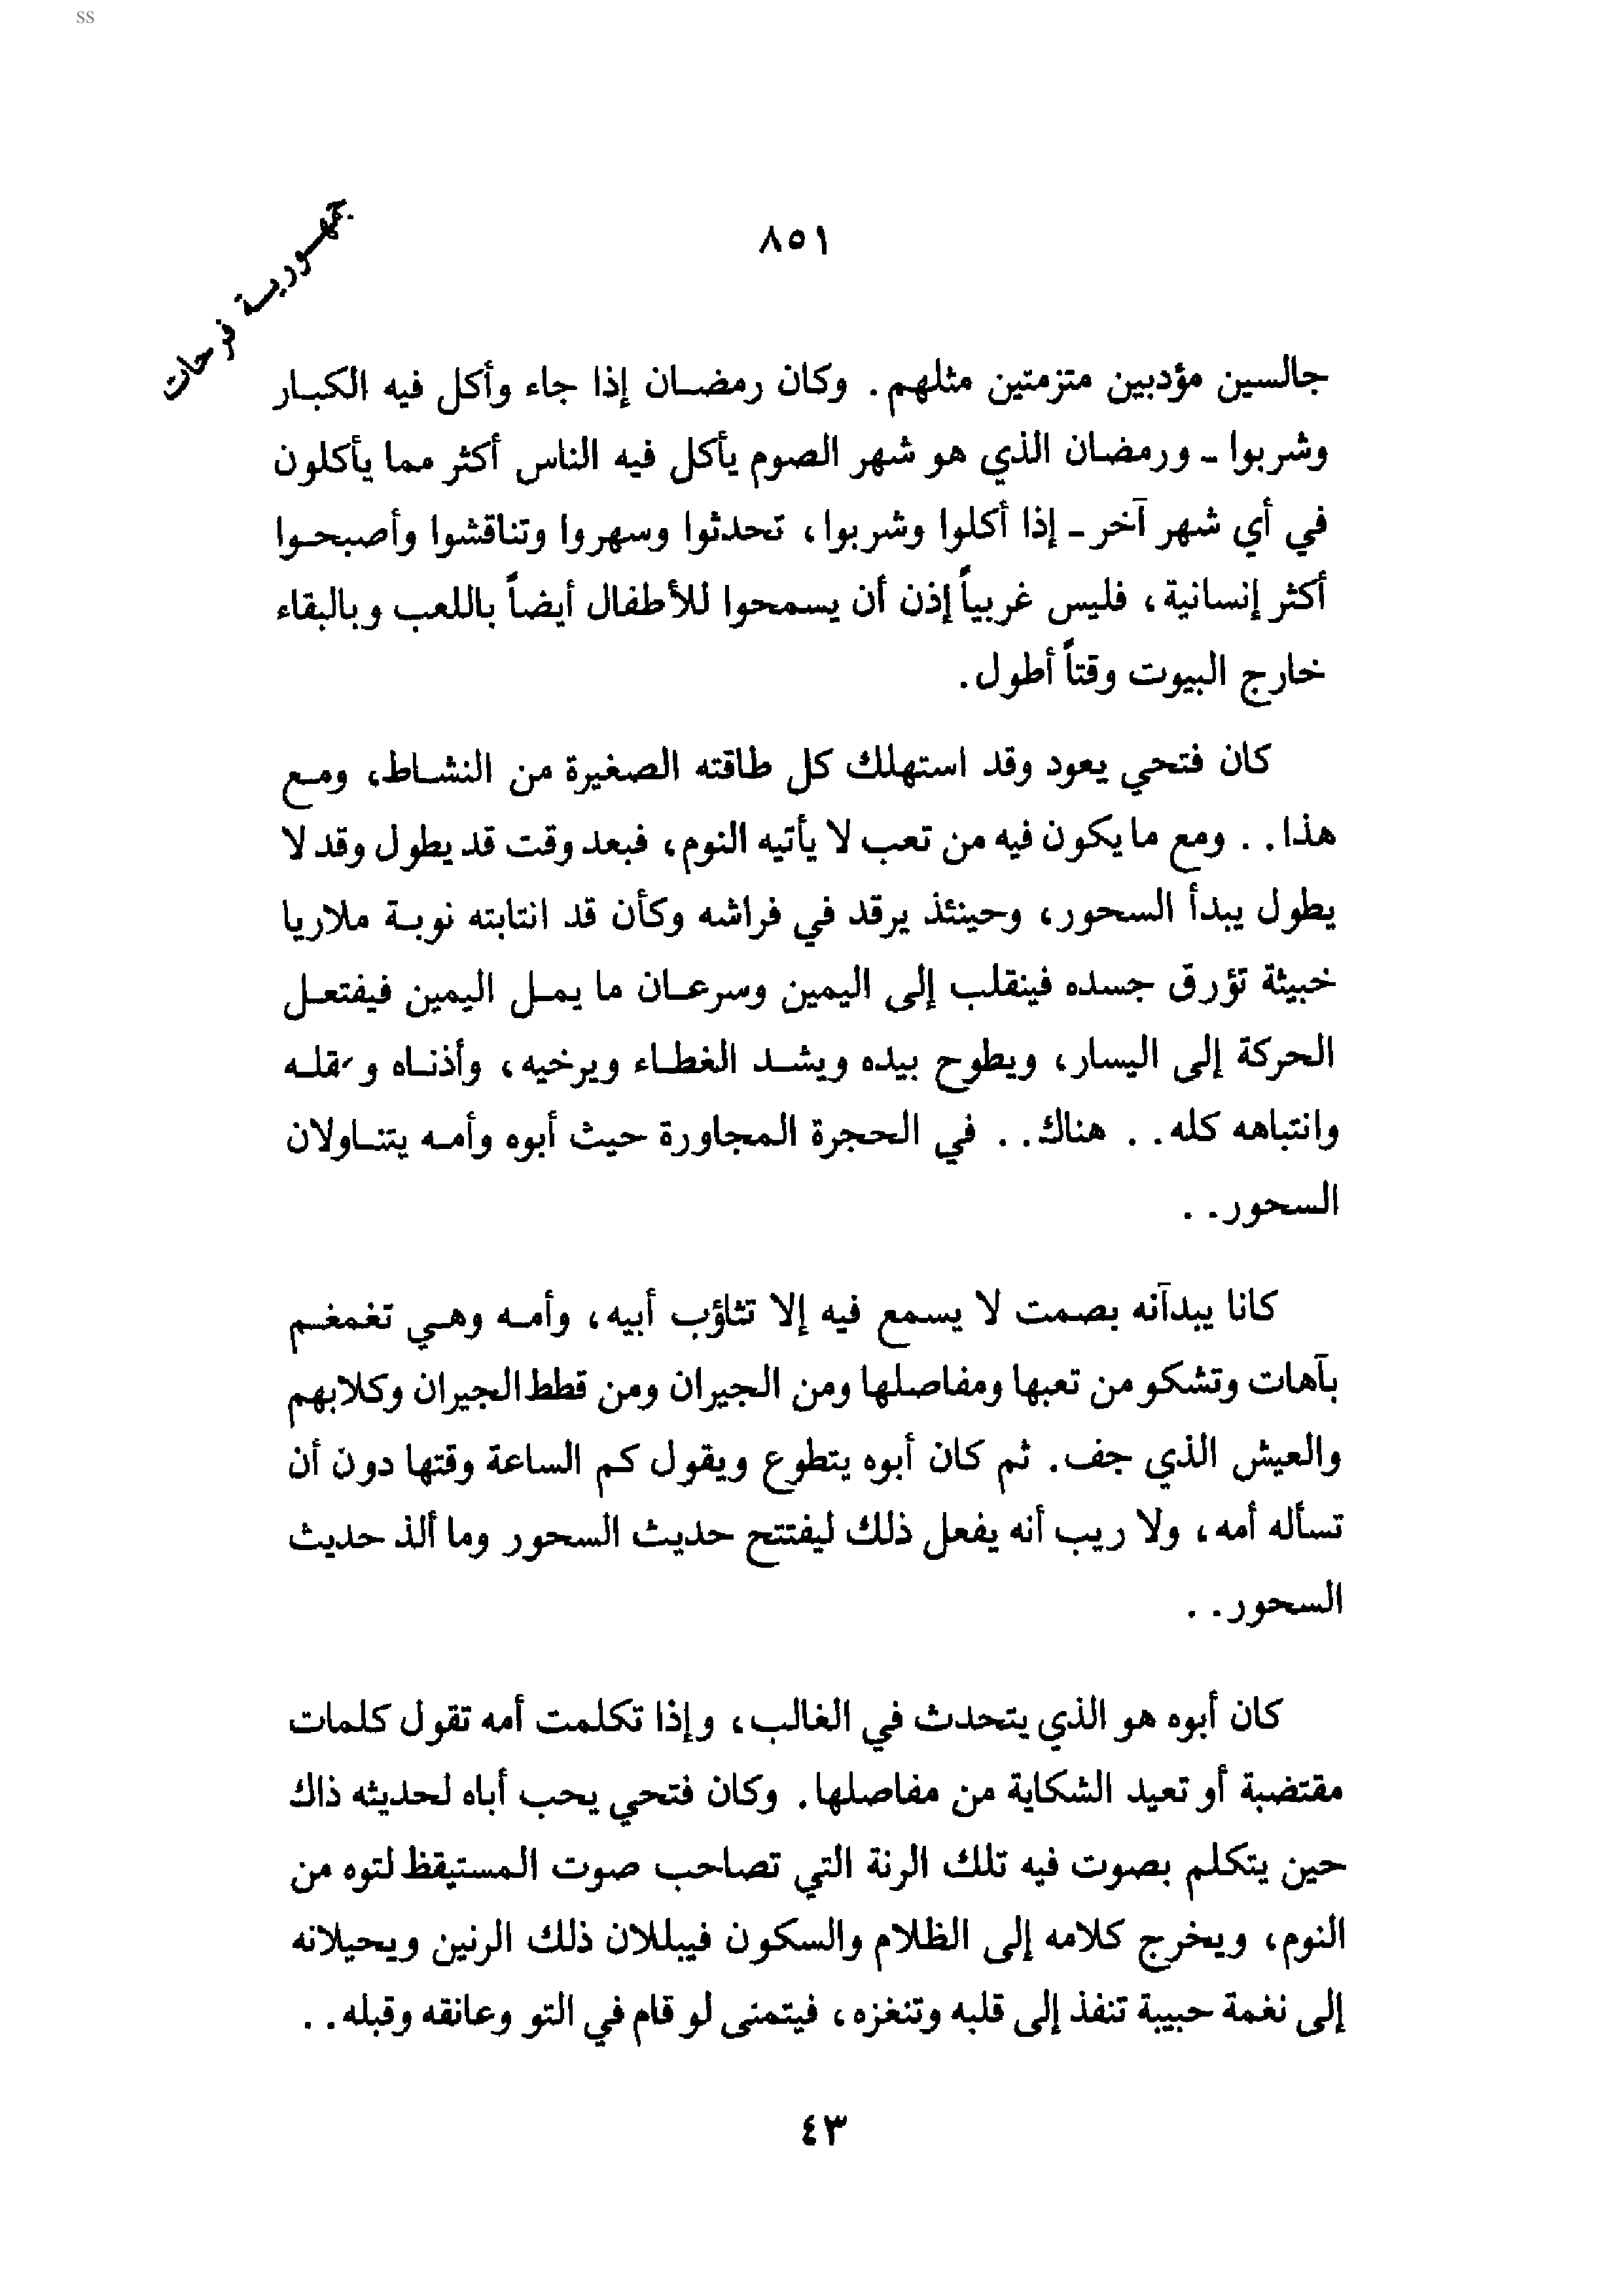 ss
جمهورية فرحات
٨٥١
جالسين مؤدبين متزمتين مثلهم. وكان رمضان إذا جاء وأكل فيه الكبار
وشربوا - ورمضان الذي هو شهر الصوم يأكل فيه الناس أكثر مما يأكلون
في أي شهر آخر - إذا أكلوا وشربوا، تحدثوا وسهروا وتناقشوا وأصبحوا
أكثر إنسانية، فليس غريباً إذن أن يسمحوا للأطفال أيضاً باللعب وبالبقاء
خارج البيوت وقتاً أطول.
كان فتحي يعود وقد استهلك كل طاقته الصغيرة من النشاط، ومع
هذا.. ومع ما يكون فيه من تعب لا يأتيه النوم، فبعد وقت قد يطول وقد لا
يطول يبدأ السحور، وحينئذ يرقد في فراشه وكأن قد انتابته نوبة ملاريا
خبيثة تؤرق جسده فينقلب إلى اليمين وسرعان ما يمل اليمين فيفتعل
الحركة إلى اليسار، ويطوح بيده ويشد الغطاء ويرخيه، وأذناه وعقله
وانتباهه كله.. هناك.. في الحجرة المجاورة حيث أبوه وأمه يتناولان
السحور..
كانا يبدآنه بصمت لا يسمع فيه إلا تثاؤب أبيه، وأمه وهي تغمغم
بآهات وتشكو من تعبها ومفاصلها ومن الجيران ومن قطط الجيران وكلابهم
والعيش الذي جف. ثم كان أبوه يتطوع ويقول كم الساعة وقتها دون أن
تسأله أمه، ولا ريب أنه يفعل ذلك ليفتتح حديث السحور وما ألذ حديث
السحور..
كان أبوه هو الذي يتحدث في الغالب، وإذا تكلمت أمه تقول كلمات
مقتضبة أو تعيد الشكاية من مفاصلها. وكان فتحي يحب أباه لحديثه ذاك
حين يتكلم بصوت فيه تلك الرنة التي تصاحب صوت المستيقظ لتوه من
النوم، ويخرج كلامه إلى الظلام والسكون فيبللان ذلك الرنين ويحيلانه
إلى نغمة حبيبة تنفذ إلى قلبه وتنغزه، فيتمنى لو قام في التو وعانقه وقبله..
٤٣